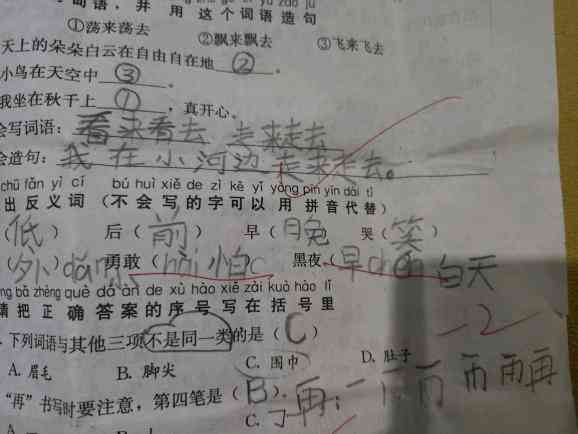 词语，并 用 这 个 词 语 造 句
①荡来荡去 ②飘来飘去 ③飞来飞去
天上的朵朵白云在自由自在地 ② 。
小鸟在天空中 ③ 。
我坐在秋千上 ① ，真开心。
会写词语：看来看去 走来走去
会造句：我在小河边走来走去。
chū fǎn yì cí bú huì xiě de zì kě yǐ yòng pīn yīn dài tì
出反义词（不会写的字可以用拼音代替）
（低） 后（前） 早（晚） 哭（笑）
（外） 勇敢（hài怕） 黑夜（早 白天
bǎ zhèng què dá àn de xù hào xiě zài kuò hào lǐ
请把正确答案的序号写在括号里
下列词语与其他三项不是同一类的是（C）
A. 眉毛 B. 脚尖 C. 围巾 D. 肚子
-2
“再”书写时要注意，第四笔是（B）。再：